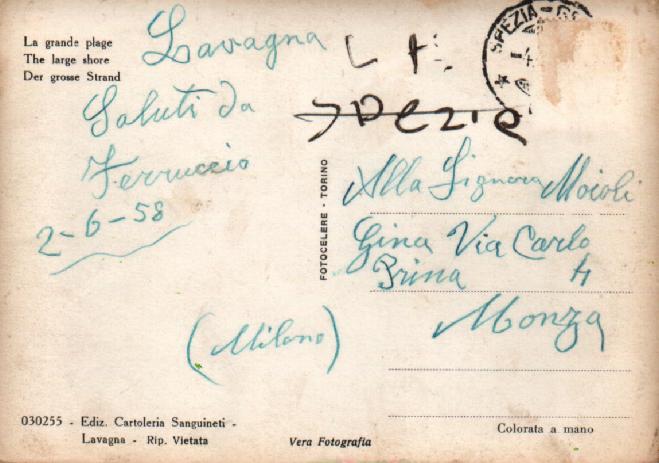 La grande plage
The large shore
Der grosse Strand
Lavagna
Saluti da
Ferruccio
2-6-58
(Milano)
L A
SPezie
SPEZIA
FOTOCELERE - TORINO
Alla Signora Moioli
Gina Via Carlo
Prina 4
Monza
030255 - Ediz. Cartoleria Sanguineti -
Lavagna - Rip. Vietata
Vera Fotografia
Colorata a mano